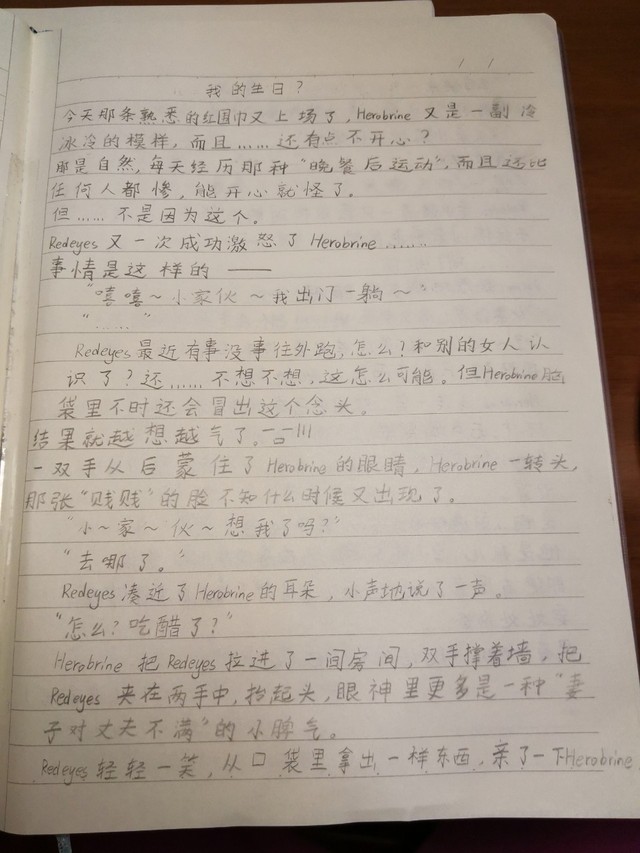 我的生日?
今天那条熟悉的红围巾又上场了,Herobrine 又是一副冷
冰冷的模样,而且……还有点不开心?
那是自然,每天经历那种"晚餐后运动",而且还比
任何人都惨,能开心就怪了。
但……不是因为这个。
Redeyes 又一次成功激怒了 Herobrine ……
事情是这样的——
"嘻嘻~小家伙~我出门一躺~"
"……"
Redeyes 最近有事没事往外跑,怎么?和别的女人认
识了?还……不想不想,这怎么可能。但Herobrine脑
袋里不时还会冒出这个念头。
结果就越想越气了。
一双手从后蒙住了 Herobrine 的眼睛,Herobrine 一转头,
那张"贱贱"的脸不知什么时候又出现了。
"小~家~伙~想我了吗?"
"去哪了。"
Redeyes 凑近了 Herobrine 的耳朵,小声地说了一声。
"怎么?吃醋了?"
Herobrine 把 Redeyes 拉进了一间房间,双手撑着墙,把
Redeyes 夹在两手中,抬起头,眼神里更多是一种"妻
子对丈夫不满"的小脾气。
Redeyes 轻轻一笑,从口袋里拿出一样东西,亲了一下Herobrine